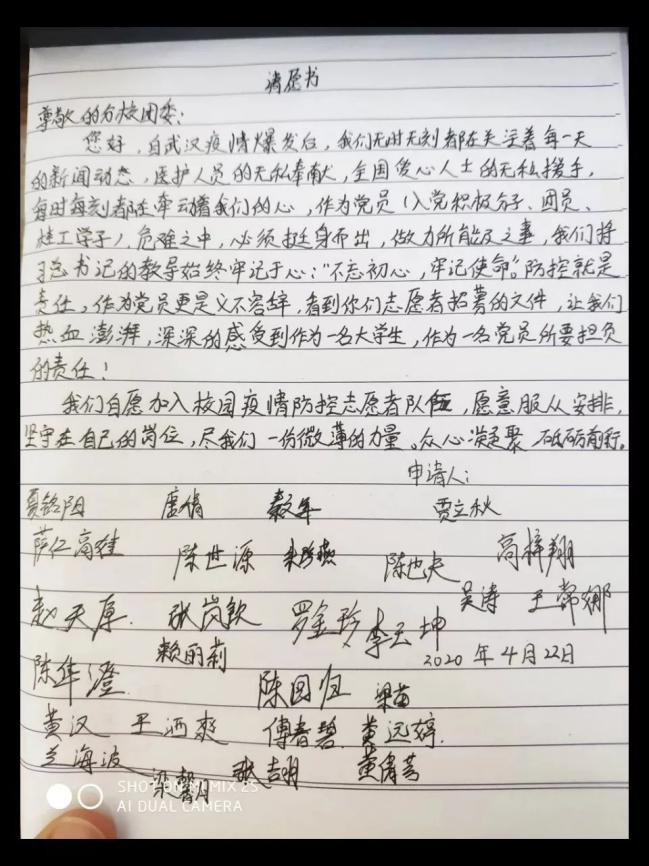 请愿书
尊敬的分校团委:
您好,自武汉疫情爆发后,我们无时无刻都在关注着每一天
的新闻动态,医护人员的无私奉献,全国爱心人士的无私援手,
每时每刻都在牵动着我们的心,作为党员(入党积极分子、团员、
桂工学子),危难之中,必须挺身而出,做力所能及之事,我们将
习总书记的教导始终牢记于心:“不忘初心,牢记使命”。防控就是
责任,作为党员更是义不容辞,看到你们志愿者招募的文件,让我们
热血澎湃,深深的感受到作为一名大学生,作为一名党员所要担负
的责任!
我们自愿加入校园疫情防控志愿者队伍,愿意服从安排,
坚守在自己的岗位,尽我们一份微薄的力量。众心凝聚 砥砺前行。
申请人:
唐倩 贾立秋
陈世源 高梓翔
吴涛
赵天厚. 张岗钦 罗金珍 李云坤
赖丽莉 2020年4月22日
陈隼澄 陈国归 梁苗
黄汉 王洒爽 傅春碧 黄远婷.
兰海波 张吉明 黄倩芸
梁馨月
SHOT ON MI MIX 2S
AI DUAL CAMERA